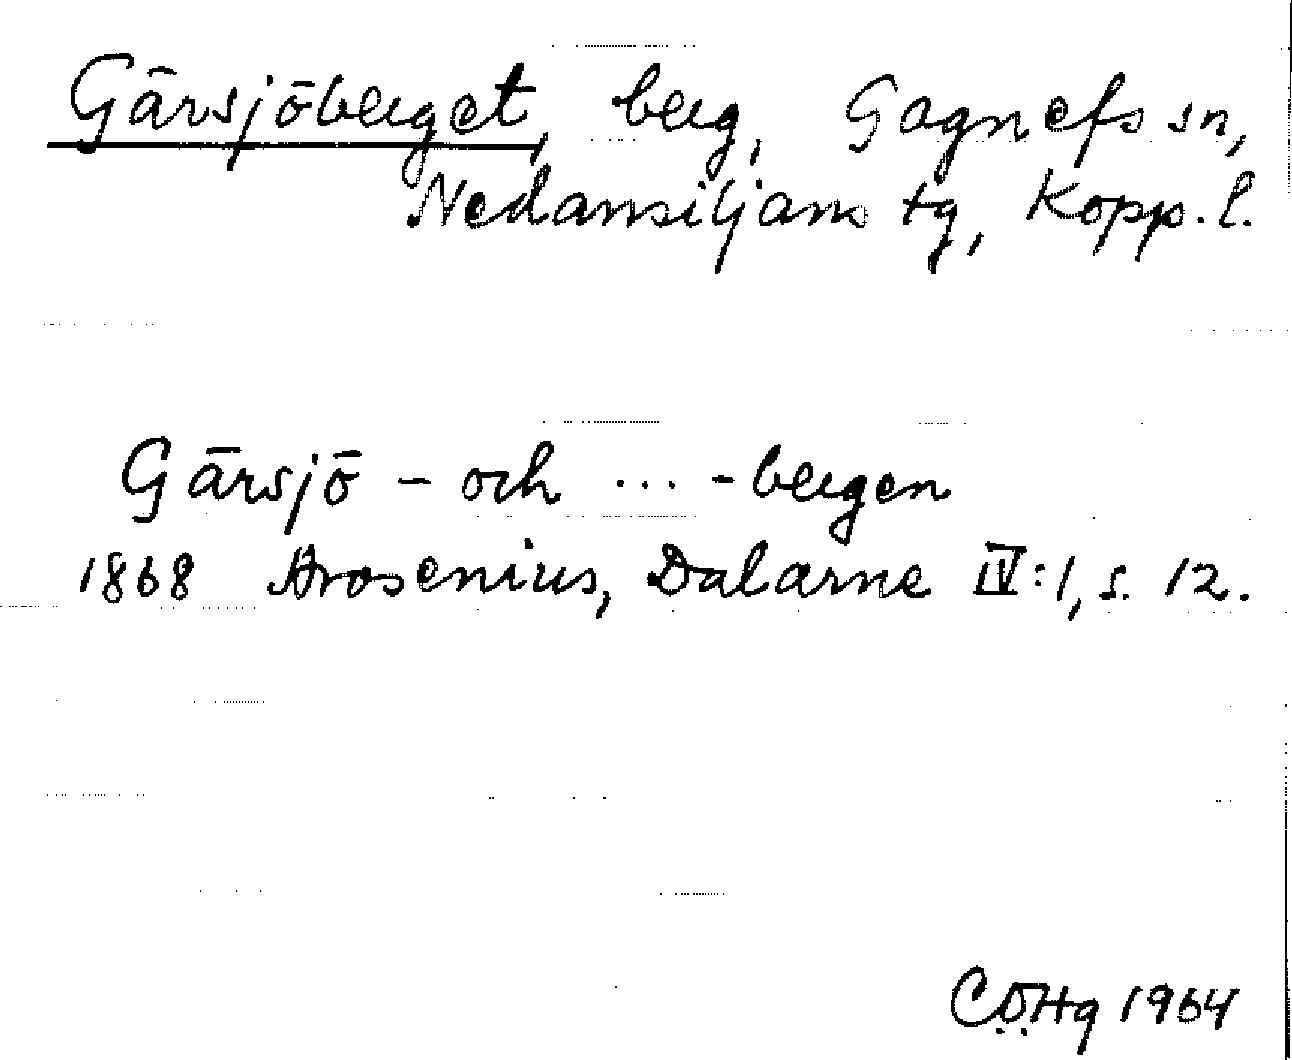 Gärsjöberget, berg, Gagnefs sn,
Nedansiljans tg, Kopp. l.
Gärsjö- och ... -bergen
1868 Arosenius, Dalarne IV:1, s. 12.
CÖHg 1964